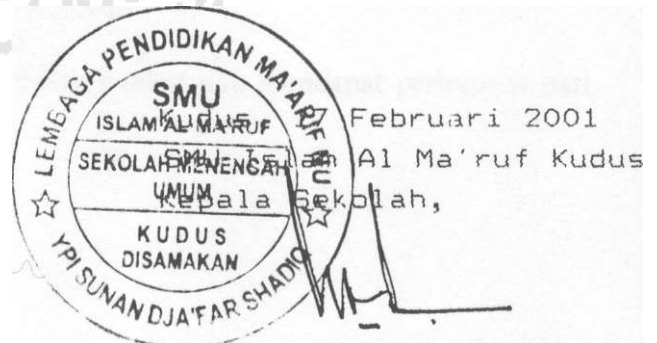 LEMBAGA PENDIDIKAN MA'ARIF NU
SMU
ISLAM AL MA'RUF
SEKOLAH MENENGAH
UMUM
KUDUS
DISAMAKAN
YPI SUNAN DJA'FAR SHADIQ
Kudus, 27 Februari 2001
SMU Islam Al Ma'ruf Kudus
Kepala Sekolah,